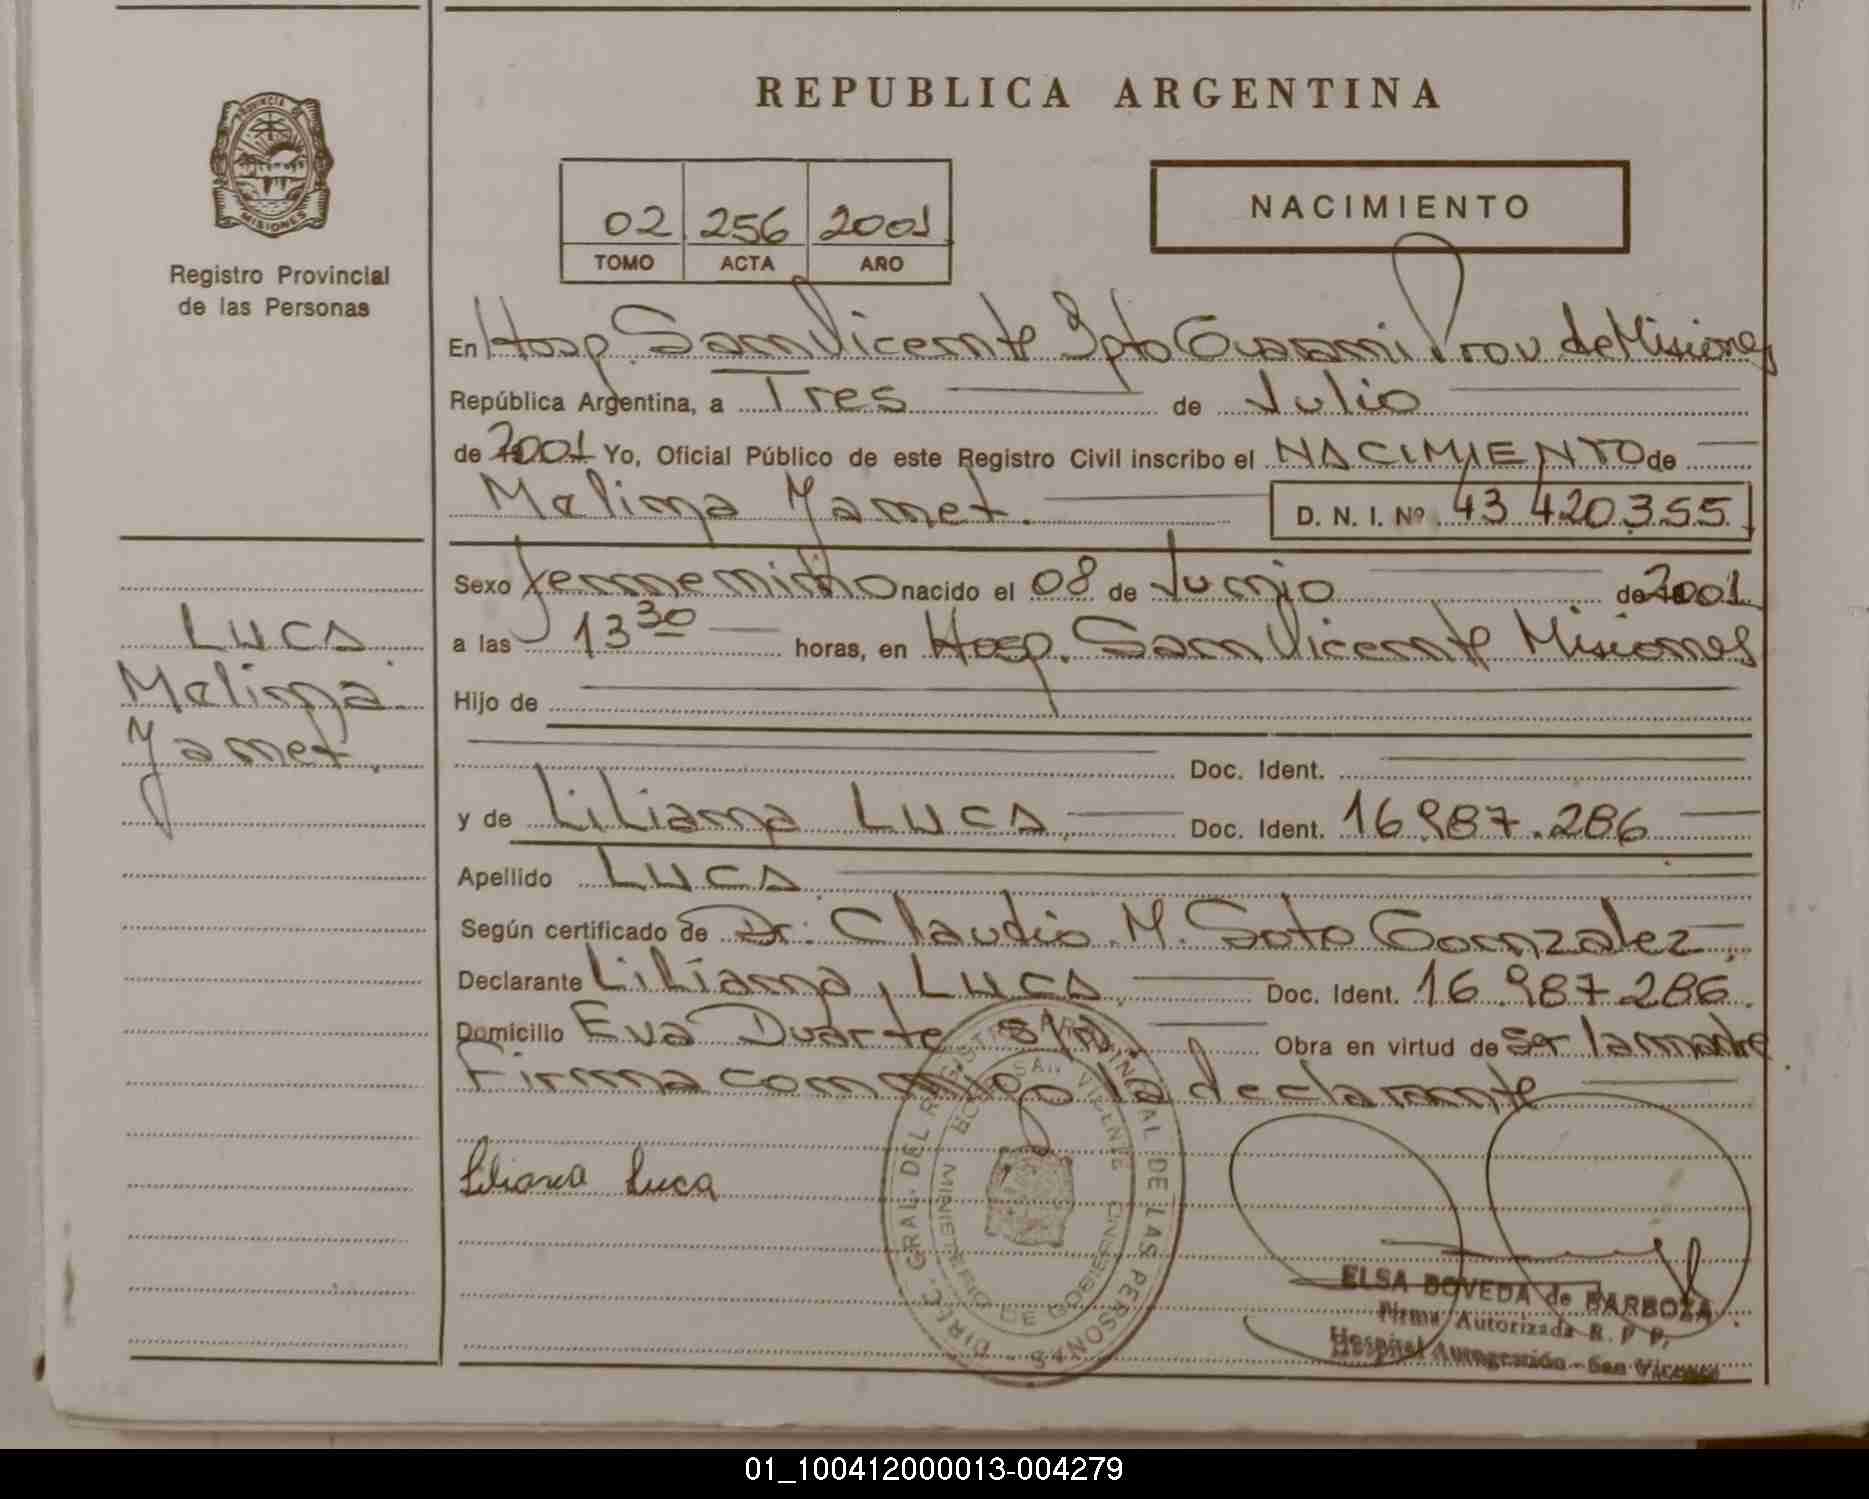 REPUBLICA ARGENTINA
PROVINCIA DE
MISIONES
Registro Provincial
de las Personas
02 256 2001
TOMO ACTA AÑO
NACIMIENTO
En Hosp. San Vicente Dpto Guarani Prov de Misiones
República Argentina, a Tres de Julio
de 2001 Yo, Oficial Público de este Registro Civil inscribo el NACIMIENTO de
Melina Yanet. D. N. I. Nº 43 420.355
Sexo femenino nacido el 08 de Junio de 2001
a las 13 30 horas, en Hosp. San Vicente Misiones
Hijo de
Doc. Ident.
y de Liliana LUCA Doc. Ident. 16.987.286
Apellido LUCA
Según certificado de Dr. Claudio M. Soto Gonzalez
Declarante Liliana, LUCA Doc. Ident. 16.987.286.
Domicilio Eva Duarte s/n. Obra en virtud de ser la madre
Firma conmigo la declarante
LUCA
Melina
Yanet.
Liliana Luca
DIREC. GRAL. DEL REGISTRO PROVINCIAL DE LAS PERSONAS
SAN VICENTE
MINISTERIO DE GOBIERNO
ELSA BOVEDA de BARBOZA
Firma Autorizada R. P. P.
Hospital Autogestión - San Vicente
01_100412000013-004279